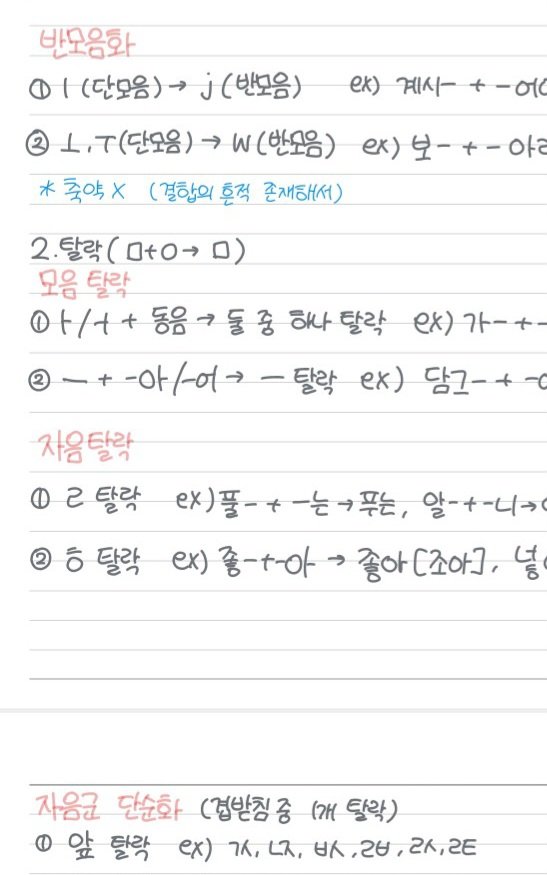 반모음화
① ㅣ(단모음) → j (반모음) ex) 계시- + -어
② ㅗ,ㅜ(단모음) → w (반모음) ex) 보- + - 아
* 축약 X (결합의 흔적 존재해서)
2. 탈락 ( □+○ → □ )
모음 탈락
① ㅏ/ㅓ + 동음 → 둘 중 하나 탈락 ex) 가- + -
② ㅡ + -아/-어 → ㅡ 탈락 ex) 담그- + -
자음탈락
① ㄹ 탈락 ex) 풀- + -는 → 푸는, 알- + -니 →
② ㅎ 탈락 ex) 좋-+-아 → 좋아 [조아], 넣
자음군 단순화 (겹받침 중 1개 탈락)
① 앞 탈락 ex) ㄳ, ㄵ, ㅄ, ㄼ, ㄽ, ㄾ